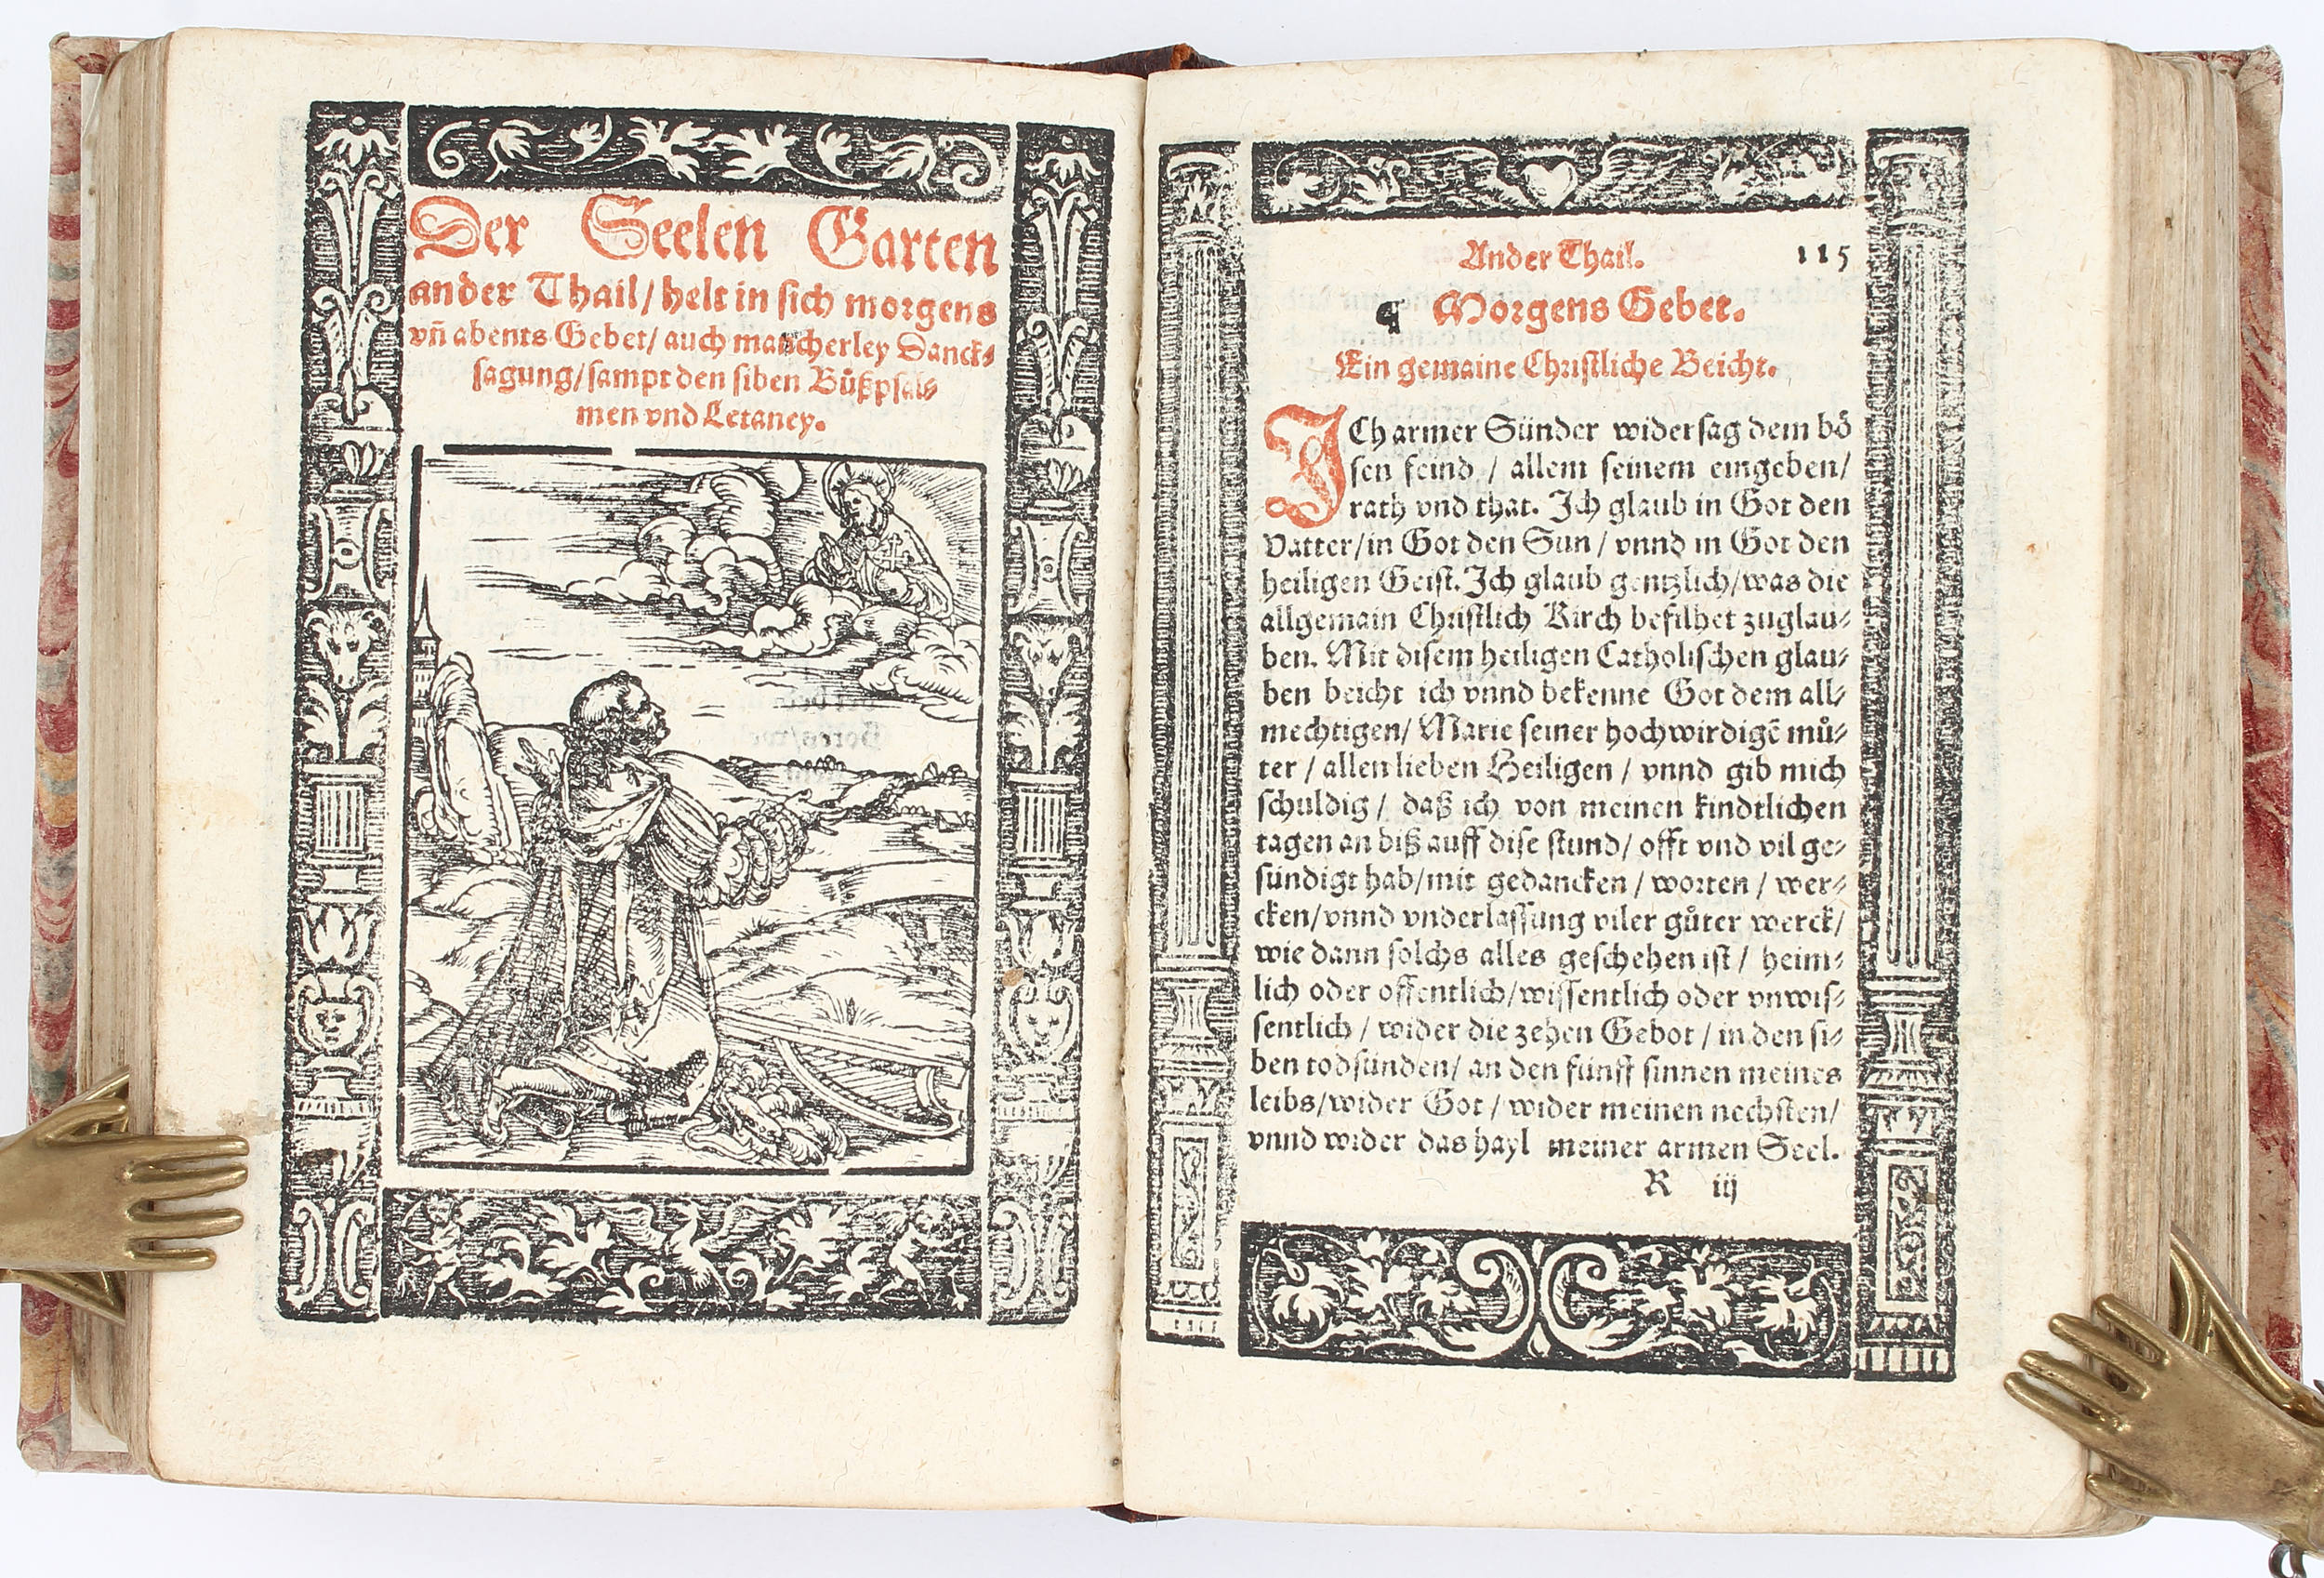 Der Seelen Garten
ander Thail/ helt in sich morgens
vñ abents Gebet/ auch mancherley Danck⸗
sagung/ sampt den siben Bůßpsal⸗
men vnd Letaney.
Ander Thail. 115
¶ Morgens Gebet.
Ein gemaine Christliche Beicht.
ICh armer Sünder widersag dem bö
sen feind / allem seinem eingeben/
rath vnd that. Ich glaub in Got den
Vatter/in Got den Sun / vnnd in Got den
heiligen Geist. Ich glaub gentzlich/was die
allgemain Christlich Kirch befilhet zuglau⸗
ben. Mit disem heiligen Catholischen glau⸗
ben beicht ich vnnd bekenne Got dem all⸗
mechtigen/ Marie seiner hochwirdigẽ mů⸗
ter / allen lieben Heiligen / vnnd gib mich
schuldig / daß ich von meinen kindtlichen
tagen an biß auff dise stund/ offt vnd vil ge⸗
sündigt hab/mit gedancken / worten / wer⸗
cken/vnnd vnderlassung viler gůter werck/
wie dann solchs alles geschehen ist / heim⸗
lich oder offentlich/wissentlich oder vnwis⸗
sentlich / wider die zehen Gebot / in den si⸗
ben todsünden/ an den fünff sinnen meines
leibs/wider Got / wider meinen nechsten/
vnnd wider das hayl meiner armen Seel.
R iij